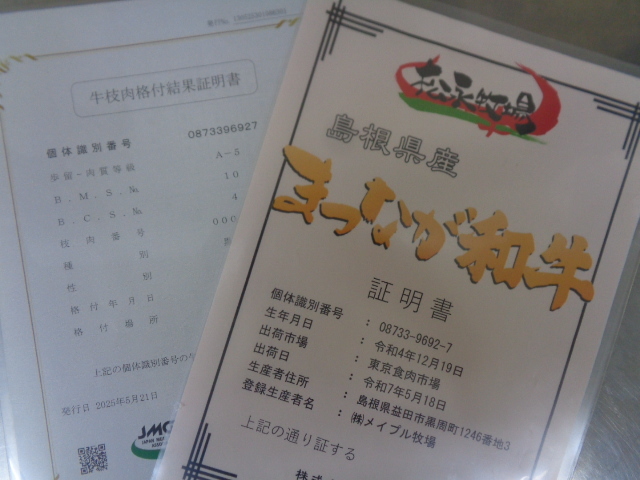 牛枝肉格付結果証明書
個体識別番号 0873396927
歩留・肉質等級 A-5
B.M.S.№ 10
B.C.S.№ 4
枝肉番号 000
種別
性別
格付年月日
格付場所
上記の個体識別番号の牛
発行日 2025年5月21日
松永牧場
島根県産
まつなが和牛
証明書
個体識別番号 : 08733-9692-7
生年月日 : 令和4年12月19日
出荷市場 : 東京食肉市場
出荷日 : 令和7年5月18日
生産者住所 : 島根県益田市黒周町1246番地3
登録生産者名 : ㈱メイプル牧場
上記の通り証する
株式